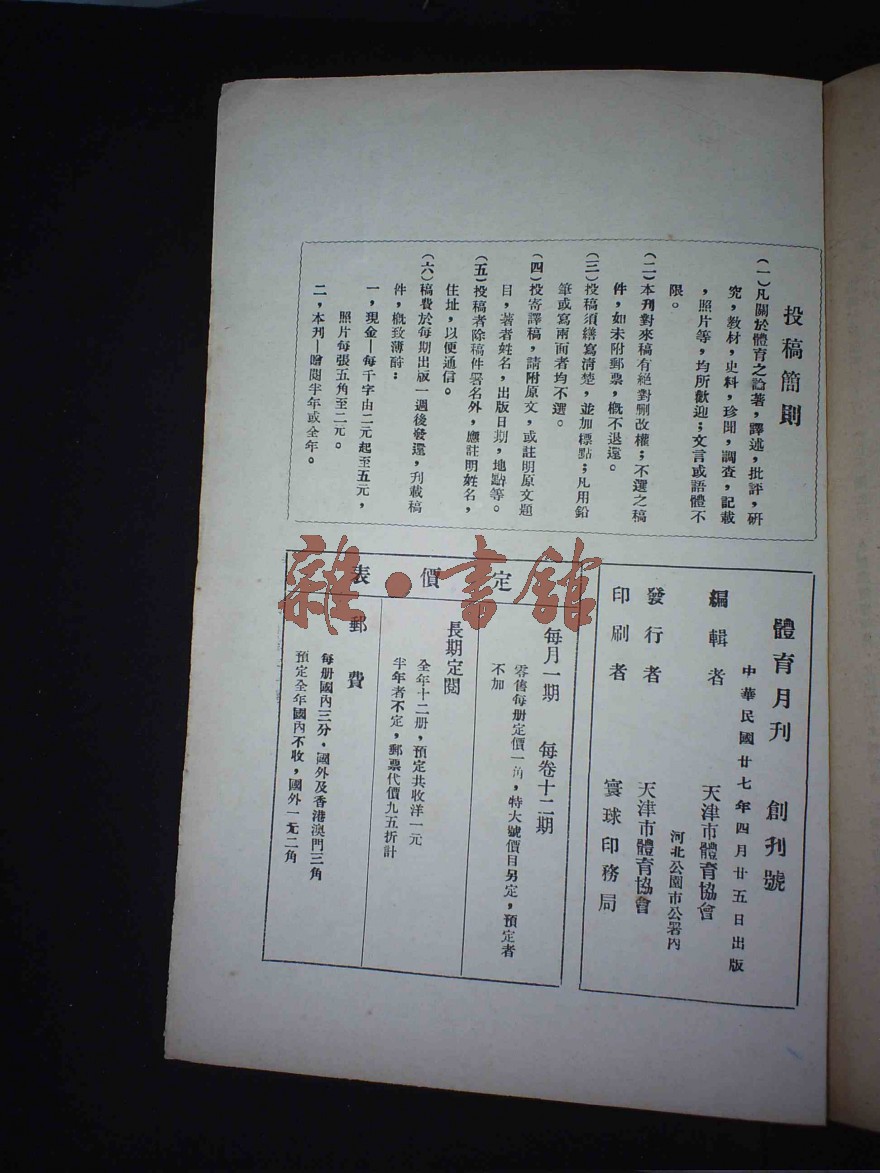 投稿簡則
(一)凡關於體育之論著,譯述,批評,研
究,教材,史料,珍聞,調查,記載
,照片等,均所歡迎;文言或語體不
限。
(二)本刊對來稿有絕對刪改權;不選之稿
件,如未附郵票,概不退還。
(三)投稿須繕寫清楚,並加標點;凡用鉛
筆或寫兩面者均不選。
(四)投寄譯稿,請附原文,或註明原文題
目,著者姓名,出版日期,地點等。
(五)投稿者除稿件署名外,應註明姓名,
住址,以便通信。
(六)稿費於每期出版一週後發還,刋載稿
件,概致薄酧:
一,現金—每千字由二元起至五元,
照片每張五角至二元。
二,本刋—贈閱半年或全年。
體育月刊 創刊號
中華民國廿七年四月廿五日出版
編輯者 天津市體育協會
河北公園市公署內
發行者 天津市體育協會
印刷者 寰球印務局
定價表
每月一期 每卷十二期
零售每册定價一角,特大號價目另定,預定者
不加
長期定閱
全年十二册,預定共收洋一元
半年者不定,郵票代價九五折計
郵費
每册國內三分,國外及香港澳門三角
預定全年國內不收,國外一元二角
雜·書館